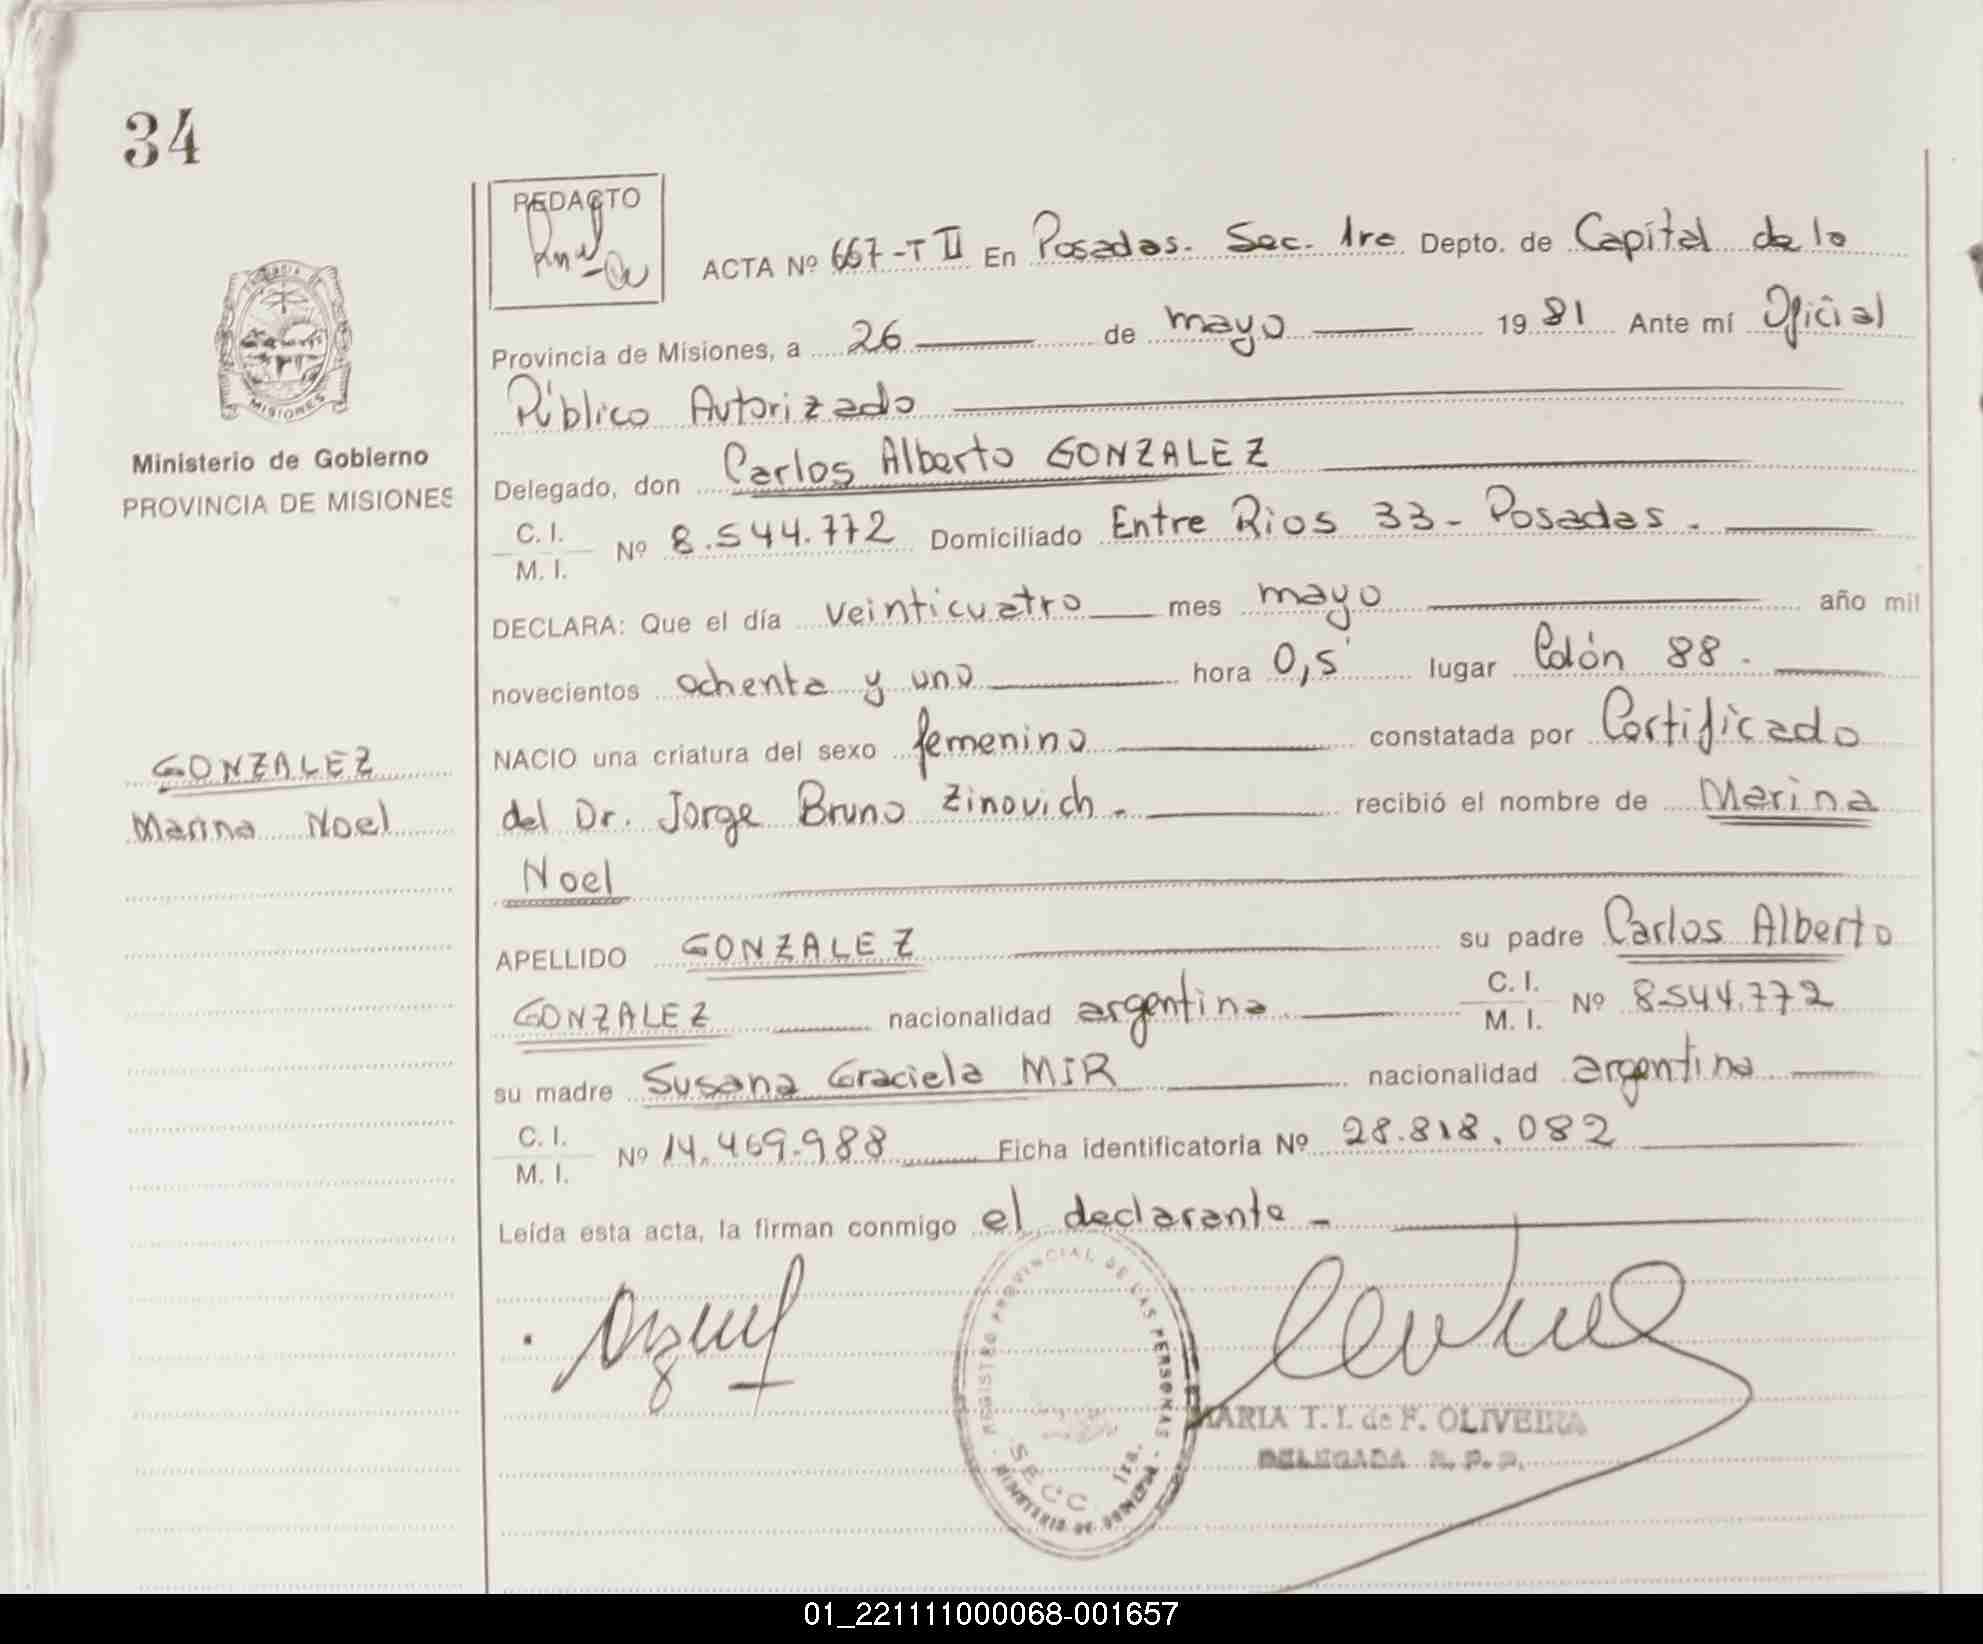 34
REDACTO
ACTA Nº 667-T II En Posadas. Sec. 1ra Depto. de Capital de la
Provincia de Misiones, a 26 de mayo 1981 Ante mí Oficial
Público Autorizado
Delegado, don Carlos Alberto GONZALEZ
C. I.
M. I. Nº 8.544.772 Domiciliado Entre Rios 33- Posadas.
DECLARA: Que el día veinticuatro mes mayo año mil
novecientos ochenta y uno hora 0,5' lugar Colón 88.
NACIO una criatura del sexo femenino constatada por Certificado
del Dr. Jorge Bruno Zinovich. recibió el nombre de Marina
Noel
APELLIDO GONZALEZ su padre Carlos Alberto
GONZALEZ nacionalidad argentina C. I.
M. I. Nº 8.544.772
su madre Susana Graciela MIR nacionalidad argentina
C. I.
M. I. Nº 14.469.988 Ficha identificatoria Nº 28.818.082
Leída esta acta, la firman conmigo el declarante -
MISIONES
Ministerio de Gobierno
PROVINCIA DE MISIONES
GONZALEZ
Marina Noel
REGISTRO PROVINCIAL DE LAS PERSONAS
SECC. 1ra.
MINISTERIO DE GOBIERNO
MARIA T. I. de F. OLIVEIRA
DELEGADA R. P. P.
01_221111000068-001657